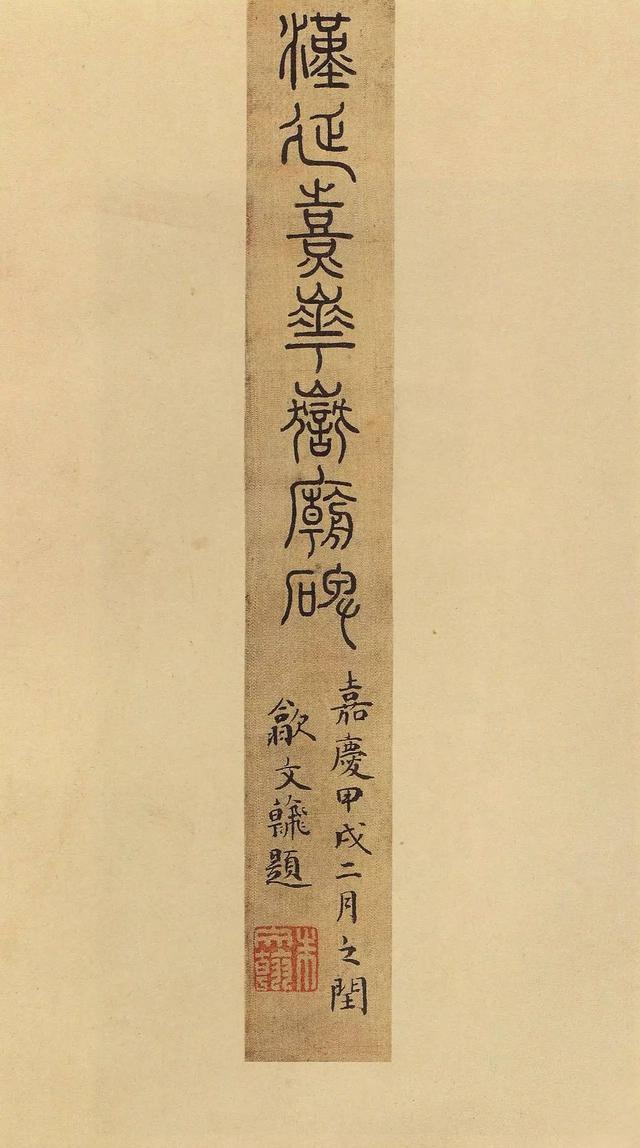 漢延熹華嶽廟碑
嘉慶甲戌二月之閏
歙文翰題
朱文翰